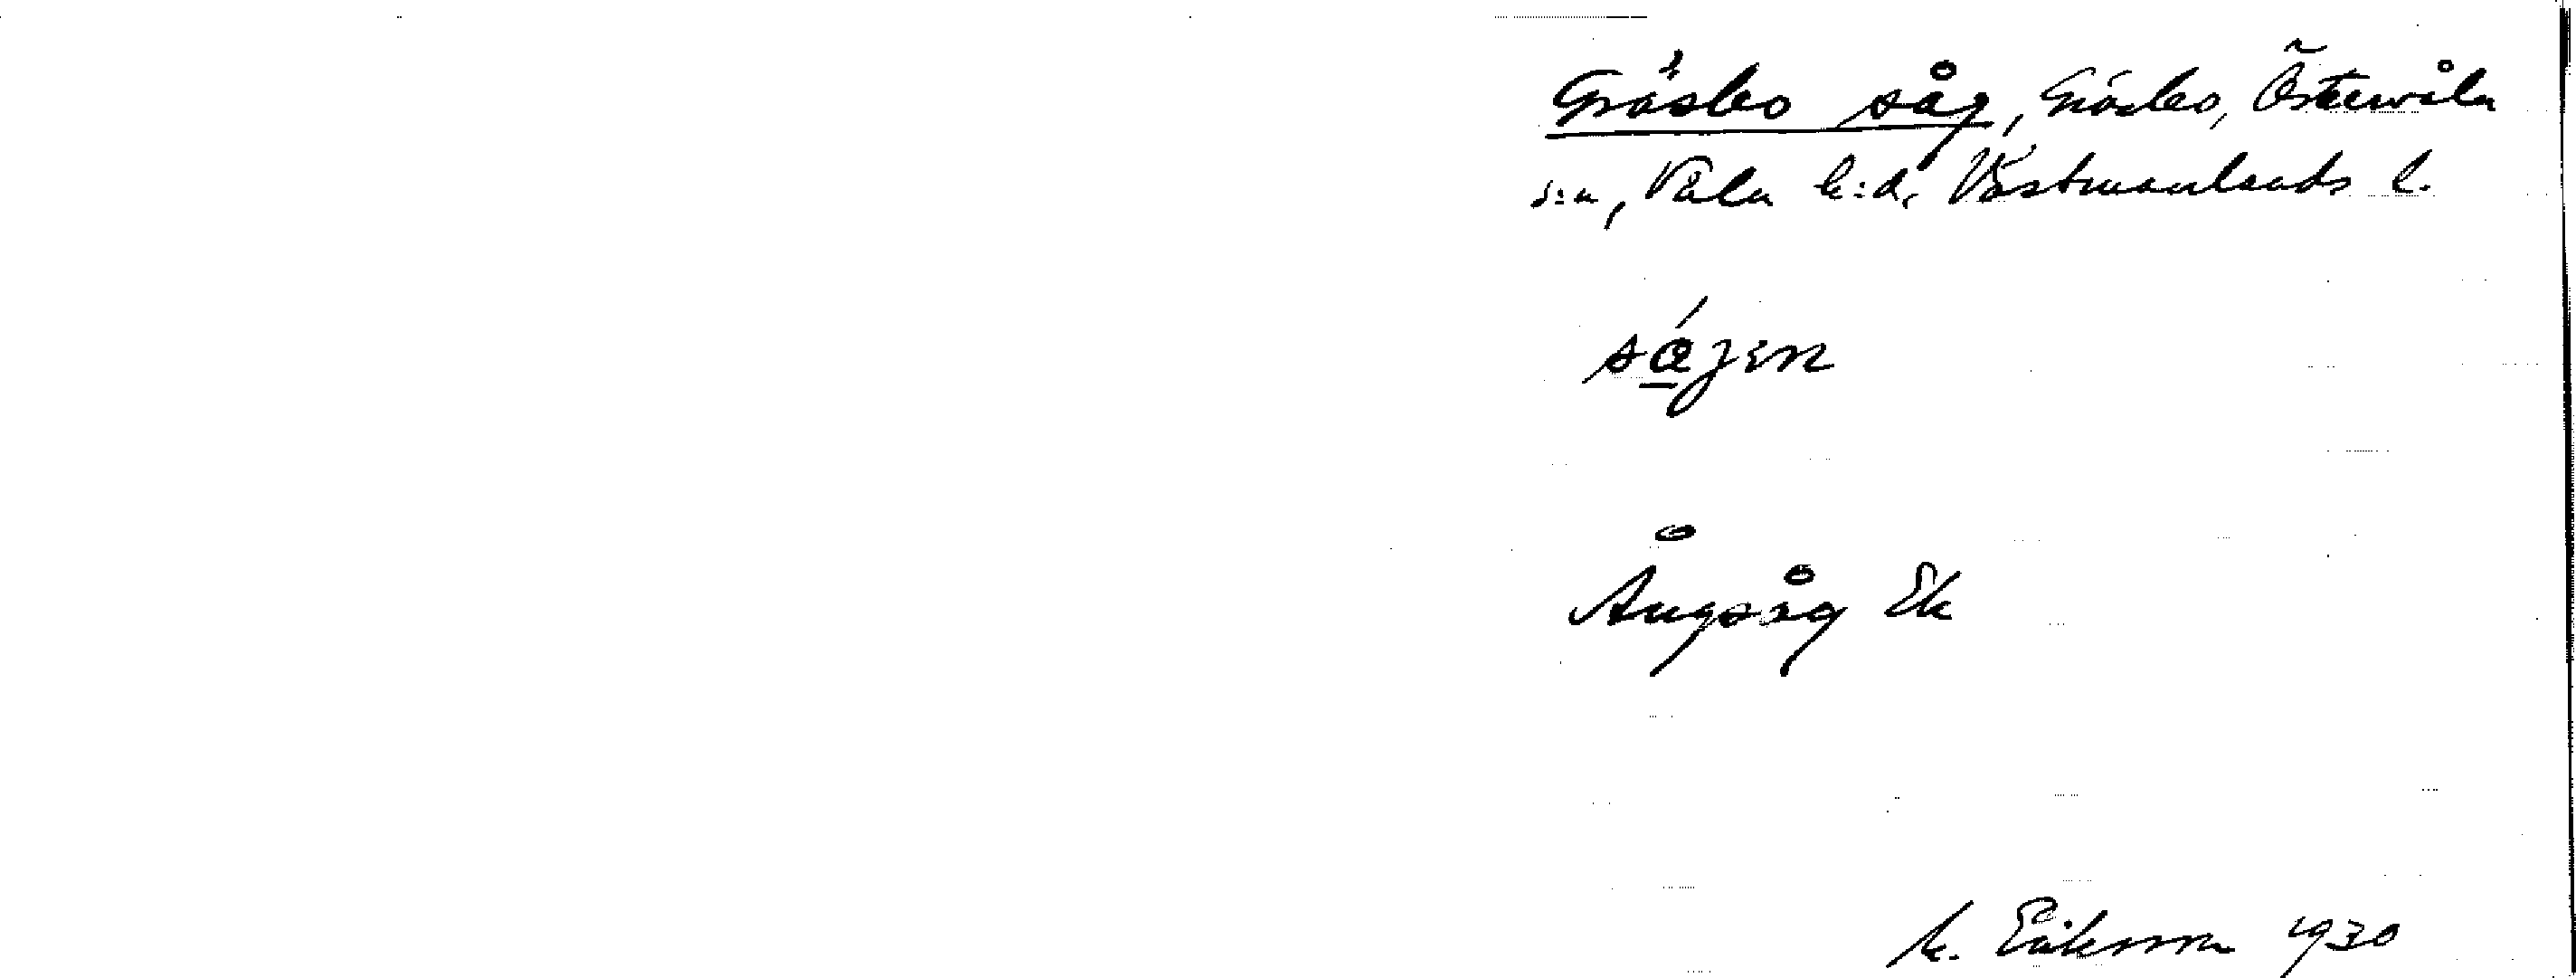 Gräsbo såg, Gräsbo, Östervåla
s:n, Våla h:d, Västmanlands l.
sá̱gen
Ångsåg Ek
M. Eriksson 1930